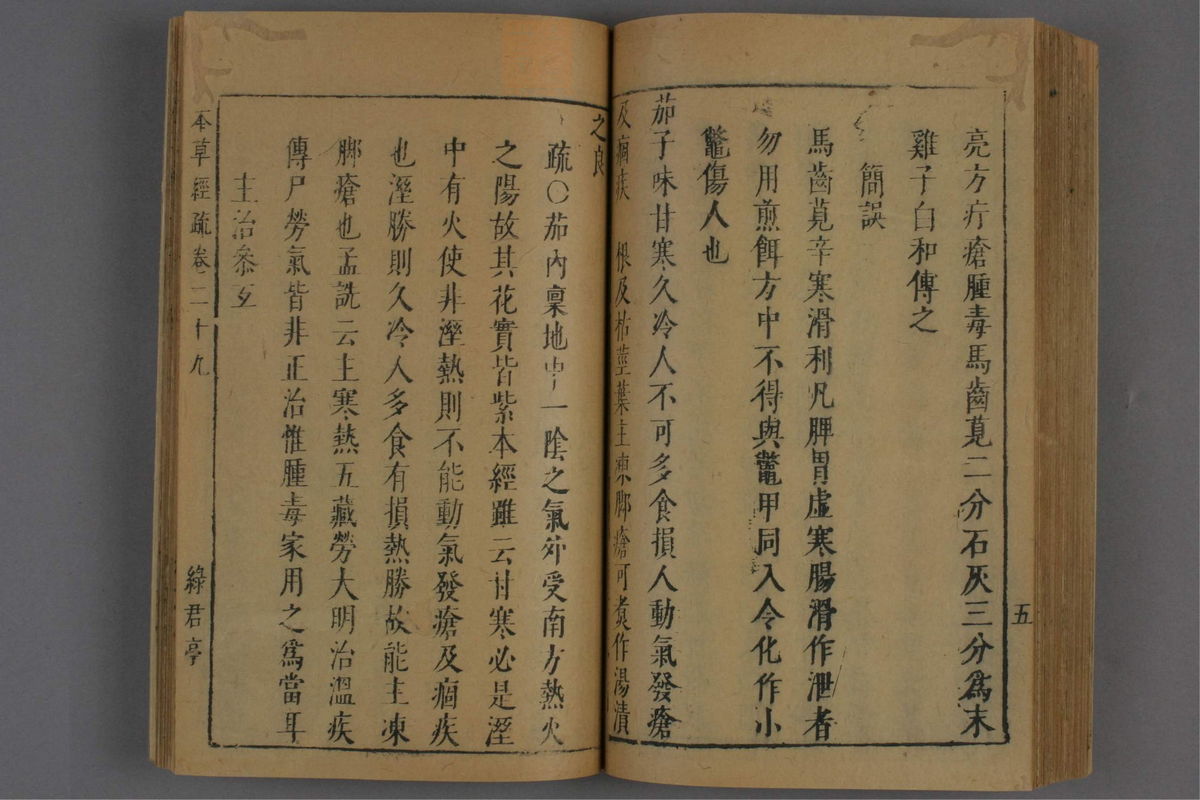 五
亮方疔瘡腫毒馬齒莧二分石灰三分爲末
雞子白和傳之
簡誤
馬齒莧辛寒滑利凡脾胃虛寒腸滑作泄者
勿用煎餌方中不得與鼈甲同入令化作小
鼈傷人也
茄子味甘寒久冷人不可多食損人動氣發瘡
及痼疾　根及枯莖葉主凍脚瘡可煑作湯漬
之良
疏〇茄內稟地中一陰之氣外受南方熱火
之陽故其花實皆紫本經雖云甘寒必是溼
中有火使非溼熱則不能動氣發瘡及痼疾
也溼勝則久冷人多食有損熱勝故能主凍
脚瘡也孟詵云主寒熱五藏勞大明治溫疾
傳尸勞氣皆非正治惟腫毒家用之爲當耳
主治參互
本草經疏卷二十九
綠君亭